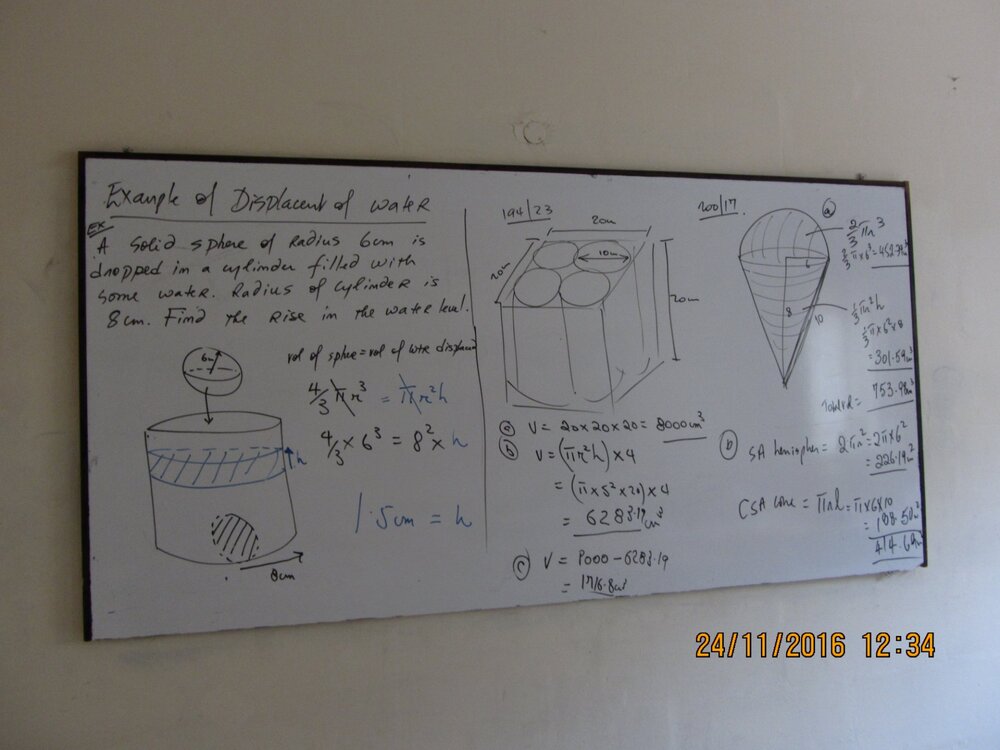 Example of Displacent of water
EX
A solid sphere of Radius 6cm is
dropped in a cylinder filled with
some water. Radius of cylinder is
8cm. Find the Rise in the water level.
6cm
vol of sphre = vol of wtr displaced
4/3 πr³ = πr²h
4/3 × 6³ = 8² × h
h
1.5cm = h
8cm
194/23
20cm
10cm
20cm
20cm
(a) V = 20×20×20 = 8000cm³
(b) V = (πr²h) × 4
= (π×5²×20) × 4
= 6283.19cm³
(c) V = 8000 – 6283.19
= 1716.8cm³
200/17.
(a)
2/3 πr³
2/3 π×6³ = 452.39cm³
6
8
10
1/3 πr²h
1/3 π×6²×8
= 301.59cm³
Total vol = 753.98cm³
(b) SA hemispher = 2πr² = 2π×6²
= 226.19cm²
CSA cone = πrl = π×6×10
= 188.50cm²
414.69cm²
24/11/2016 12:34